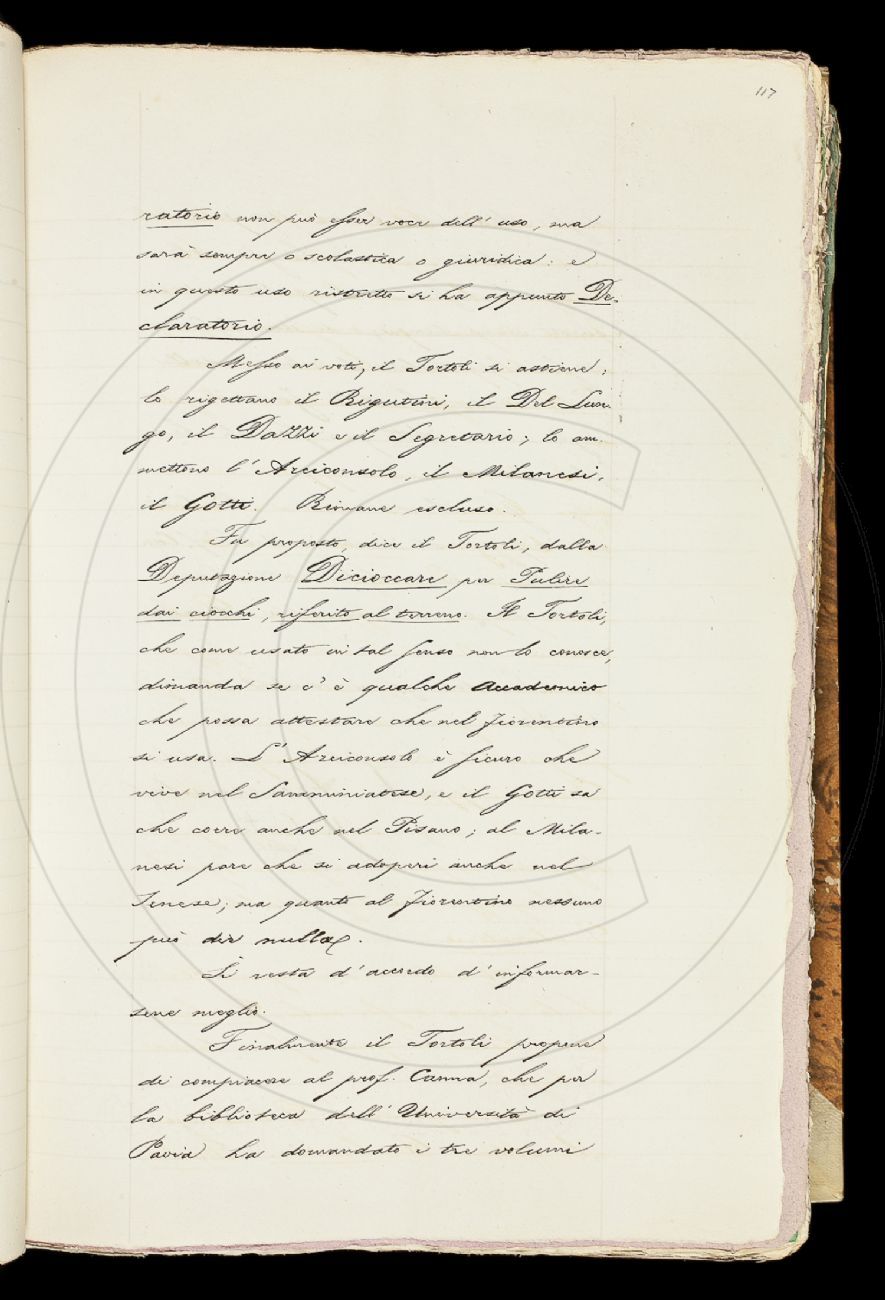 117
ratorio non può esser voce dell' uso, ma
sarà sempre o scolastica o giuridica: e
in questo uso ristretto si ha appunto De-
claratorio.
Messo ai voti, il Tortoli si astiene;
lo rigettano il Rigutini, il Del Lun-
go, il Dazzi e il Segretario; lo am-
mettono l' Arciconsolo, il Milanesi,
il Gotti. Rimane escluso.
Fu proposto, dice il Tortoli, dalla
Deputazione Dicioccare per Pulire
dai ciocchi, riferito al terreno. Il Tortoli,
che come usato in tal senso non lo conosce,
dimanda se c' è qualche Accademico
che possa attestare che nel fiorentino
si usa. L' Arciconsolo è sicuro che
vive nel Samminiatese, e il Gotti sa
che corre anche nel Pisano; al Mila-
nesi pare che si adoperi anche nel
Senese; ma quanto al fiorentino nessuno
può dir nulla.
Si resta d' accordo d' informar-
sene meglio.
Finalmente il Tortoli propone
di compiacere al prof. Canna, che per
la biblioteca dell' Università di
Pavia ha domandato i tre volumi